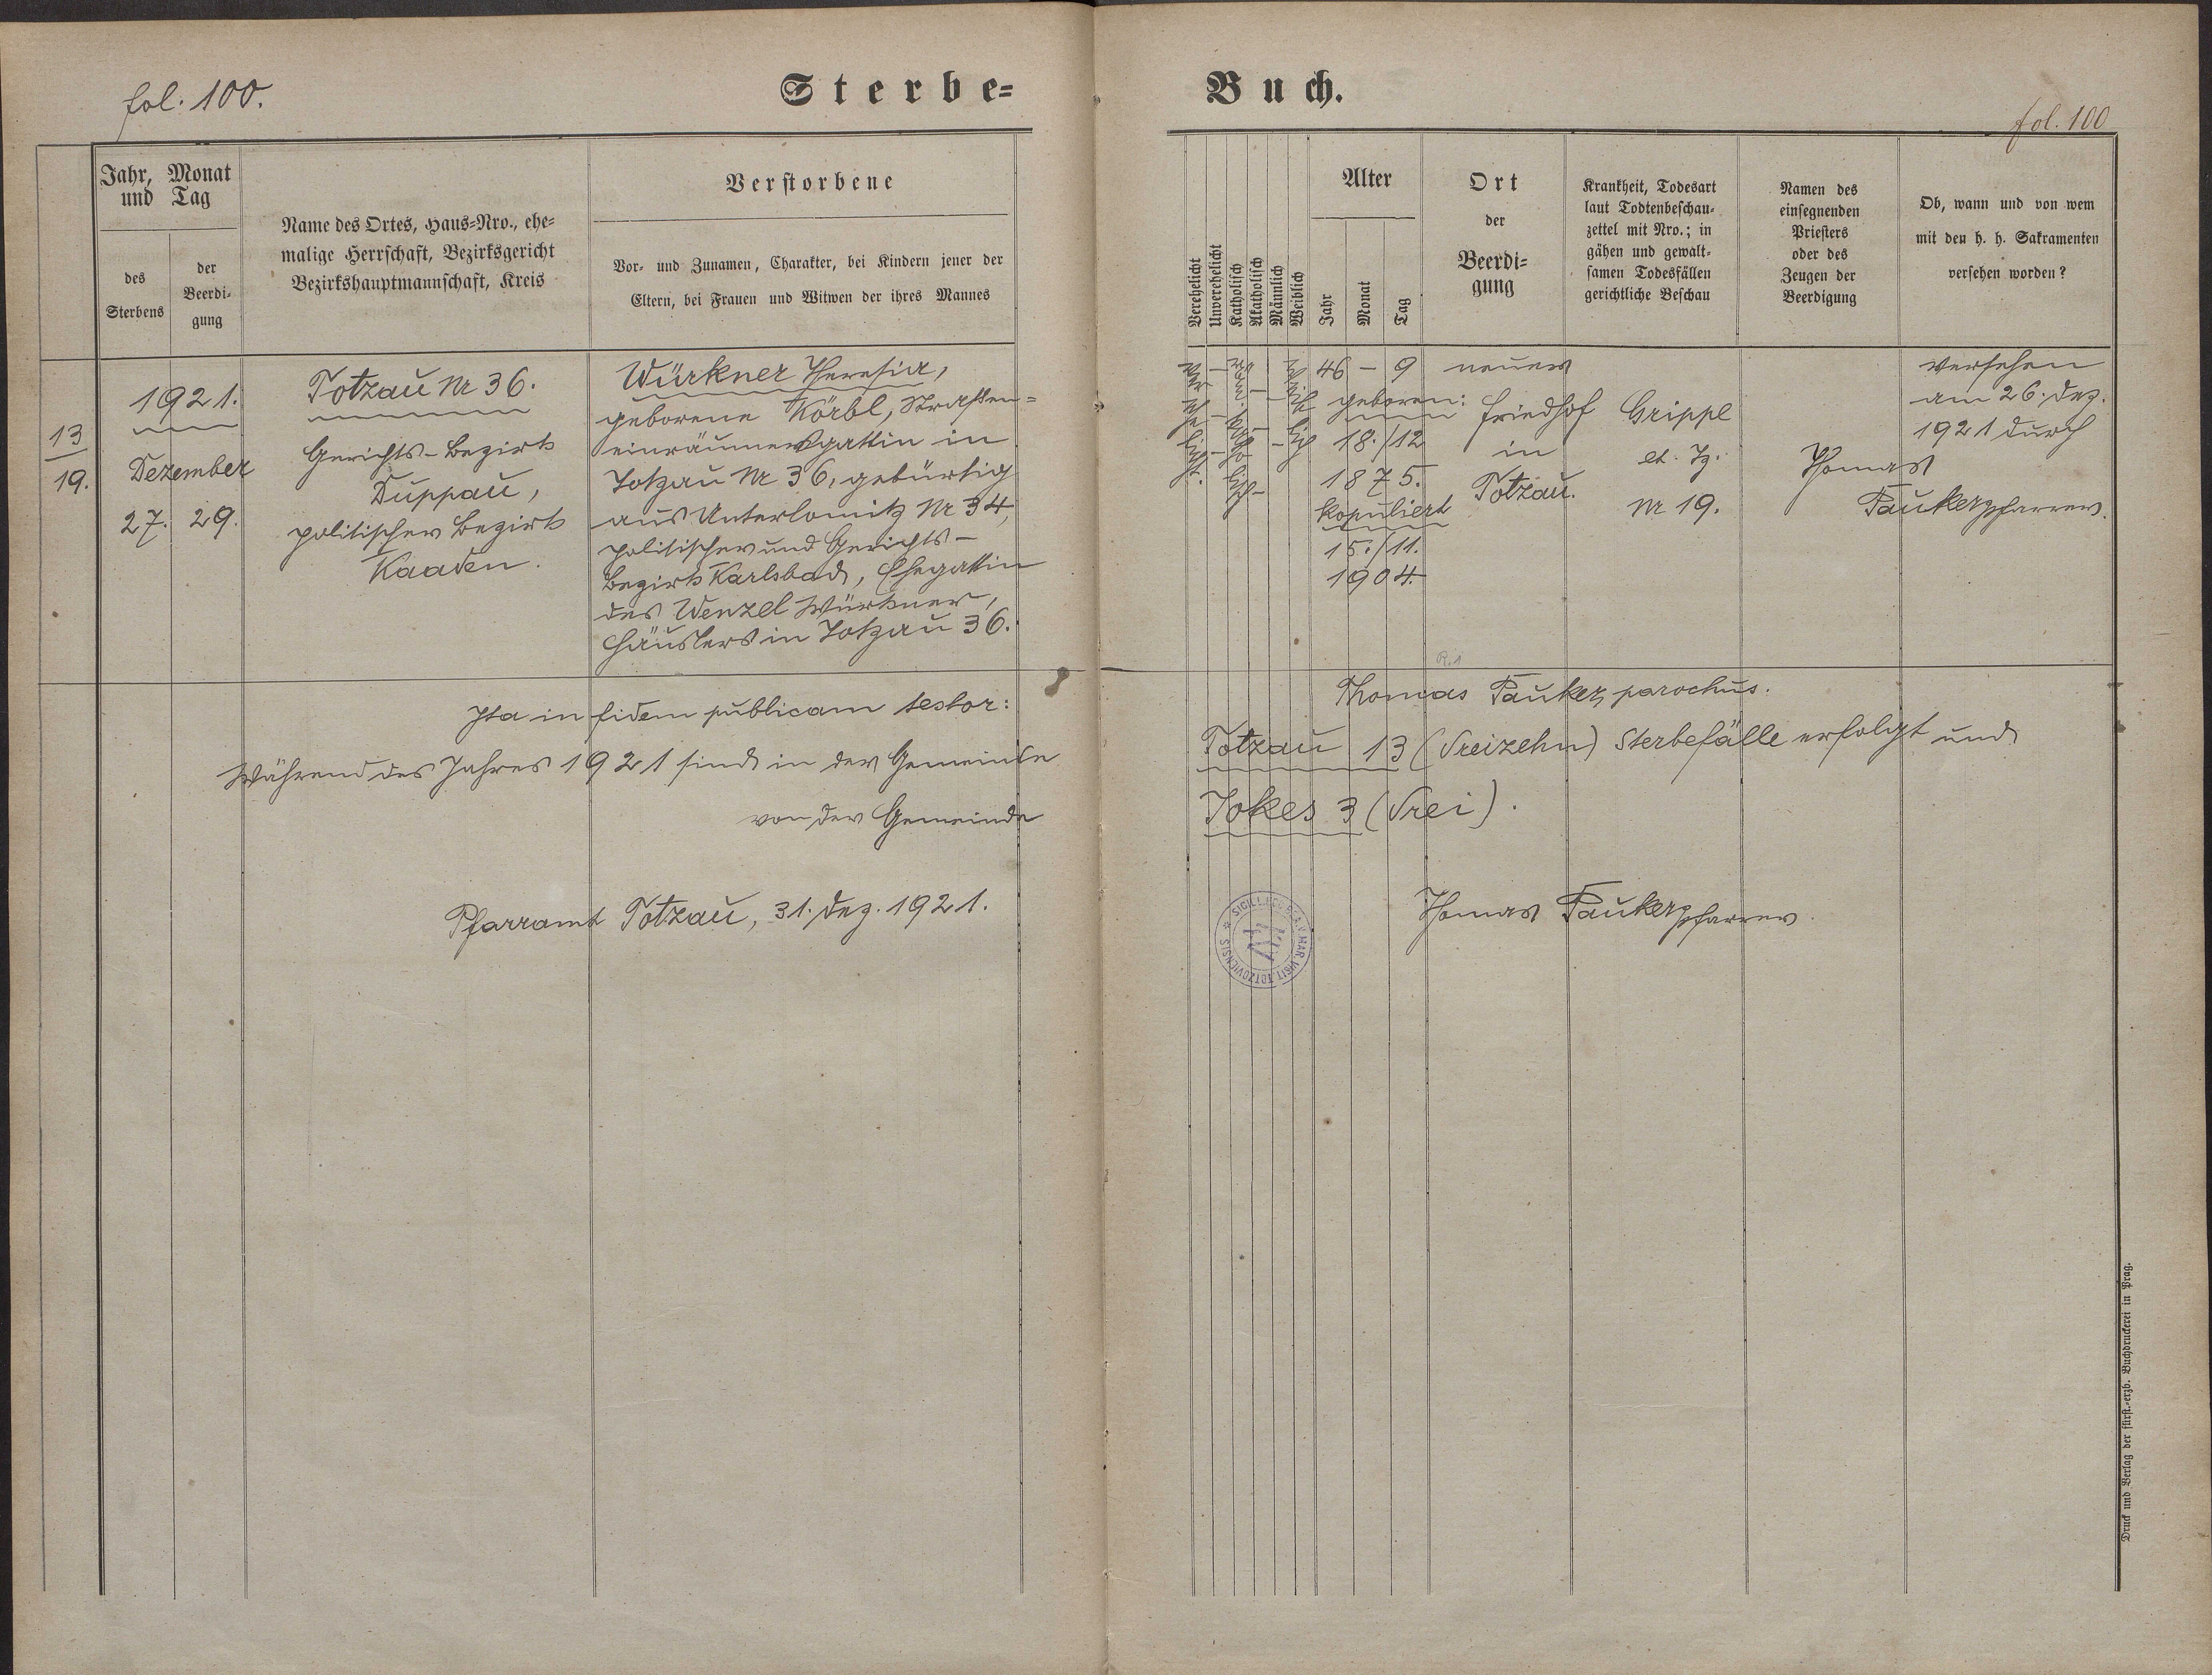 fol. 100.
Sterbe=
Buch.
fol. 100
Jahr, Monat
und Tag
des
Sterbens
der
Beerdi-
gung
Name des Ortes, Haus-Nro., ehe-
malige Herrschaft, Bezirksgericht
Bezirkshauptmannschaft, Kreis
Verstorbene
Vor- und Zunamen, Charakter, bei Kindern jener der
Eltern, bei Frauen und Witwen der ihres Mannes
Verehelicht
Unverehelicht
Katholisch
Akatholisch
Männlich
Weiblich
Alter
Jahr
Monat
Tag
Ort
der
Beerdi-
gung
Krankheit, Todesart
laut Todtenbeschau-
zettel mit Nro.; in
gähen und gewalt-
samen Todesfällen
gerichtliche Beschau
Namen des
einsegnenden
Priesters
oder des
Zeugen der
Beerdigung
Ob, wann und von wem
mit den h. h. Sakramenten
versehen worden?
13
19.
1921.
Dezember
27. 29.
Totzau Nr 36.
Gerichts-Bezirk
Duppau,
politischer Bezirk
Kaaden.
Würkner Theresia,
geborene Körbl, Straßen=
einräumersgattin in
Totzau Nr 36, gebürtig
aus Unterlomitz Nr 34,
politischer und Gerichts-
bezirk Karlsbad, Ehegattin
des Wenzel Würkner,
Häuslers in Totzau 36.
ver
eh
lich
röm.
katho
lisch
weib
lich
46 – 9
geboren:
18./12
1875.
kopuliert
15./11.
1904.
neuer
Friedhof
in
Totzau.
Grippe
Nr 19.
Thomas
Pauker, Pfarrer.
versehen
am 26. Dez.
1921 durch
Ita in fidem publicam testor:
Thomas Pauker, parochus.
Während des Jahres 1921 sind in der Gemeinde
Totzau 13 (dreizehn) Sterbefälle erfolgt und
von der Gemeinde
Jokes 3 (drei).
Pfarramt Totzau, 31. Dez. 1921.
Thomas Pauker, Pfarrer.
Druck und Verlag der fürst.-erzb. Buchdruckerei in Prag.